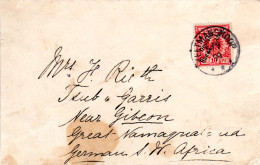 Mrs H. Rieth
Tsub & Garris
Near Gibeon
Great Namaqualand
German S. W. Africa